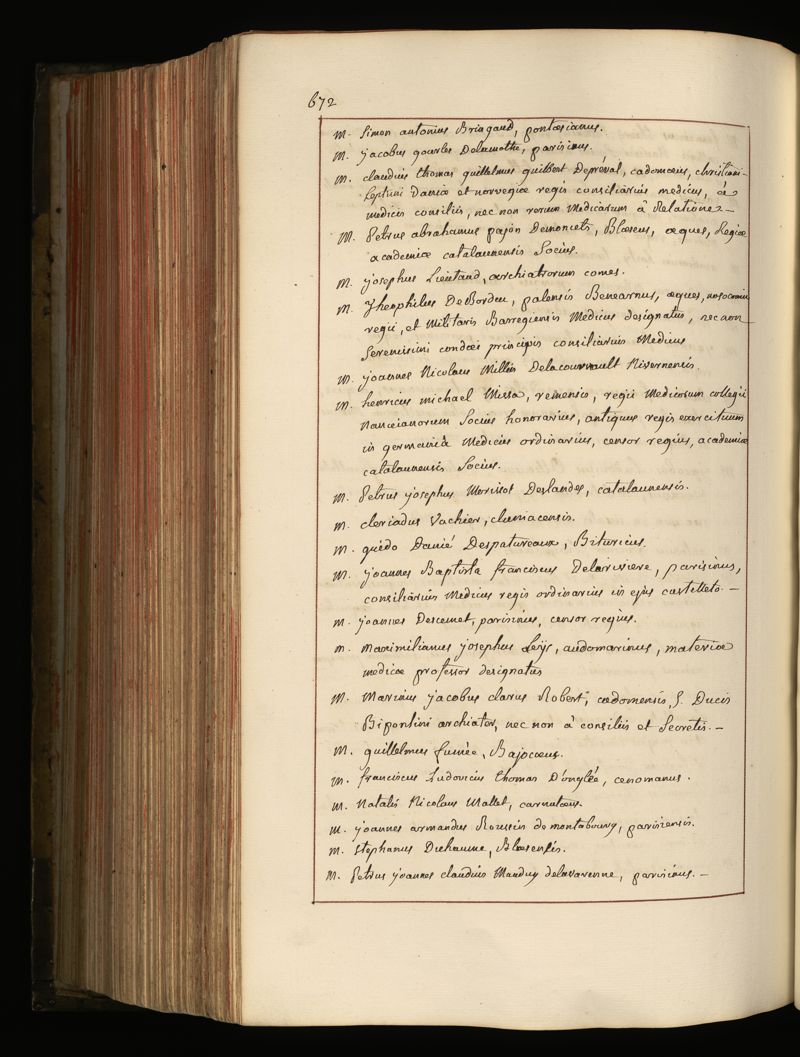 672
M. Simon antonius Bringaud, pontæsianus.
M. jacobus gourles Delamothe, parisinus.
M. claudius thomas guillelmus guilbert Depréval, cadomœus, christiani-
Septimi Daniæ et norvegiæ regis consiliarius medicus, à
medicis consiliis, nec non rerum Medicarum à Relatione –
M. Petrus abrahamus pajon Demoncets, Blœseus, æques, Regiæ
academiæ catalaunensis Socius.
M. josephus Lieutaud, archiatrorum comes.
M. Theophilus De Bordeu, palensis Benearnus, æques, nosocomii
regii, et Militaris Barregiensis Medicus designatus, nec non
Serenissimi condæi principis consiliarius Medicus
M. joannes Nicolaus Millin Delacourvault Nivernensis.
M. henricus michael Missa, remensis, regii Medicorum collegii
Nanceianorum Socius honorarius, antiquus regis exercituum
in germaniâ Medicus ordinarius, censor regius, academiæ
catalaunensis Socius.
M. Petrus josephus Morisot Deslandes, catalaunensis.
M. cleriadus Vachier, cluniacensis.
M. guido Danié Despatureaux, Bituricus.
M. joannes Baptista franciscus Delarivière, parisinus,
consiliarius Medicus regis ordinarius in ejus castelleto. –
M. joannes Descemet, parisinus, censor regius.
M. Maximilianus josephus Leijs, audomarinus, materiæ
medicæ professor designatus
M. Marinus jacobus clarus Robert, cædomensis, S. Ducis
Bipontini archiater, nec non à consiliis et Secretis. –
M. guillelmus fumée, Bajocœus.
M. franciscus Ludovicus thomas D'onglée, cenomanus.
M. Natalis Nicolaus Mallet, carnutæus.
M. joannes armandus Roussin de montabourg, parisiensis.
M. Stephanus Duhaume, Blœsensis.
M. Petrus joannes claudius Mauduy delavarenne, parisinus. –